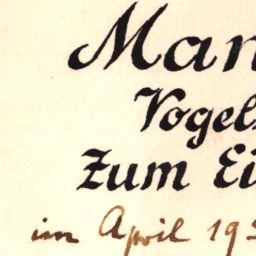 Man
Vogels
Zum Ei
im April 193